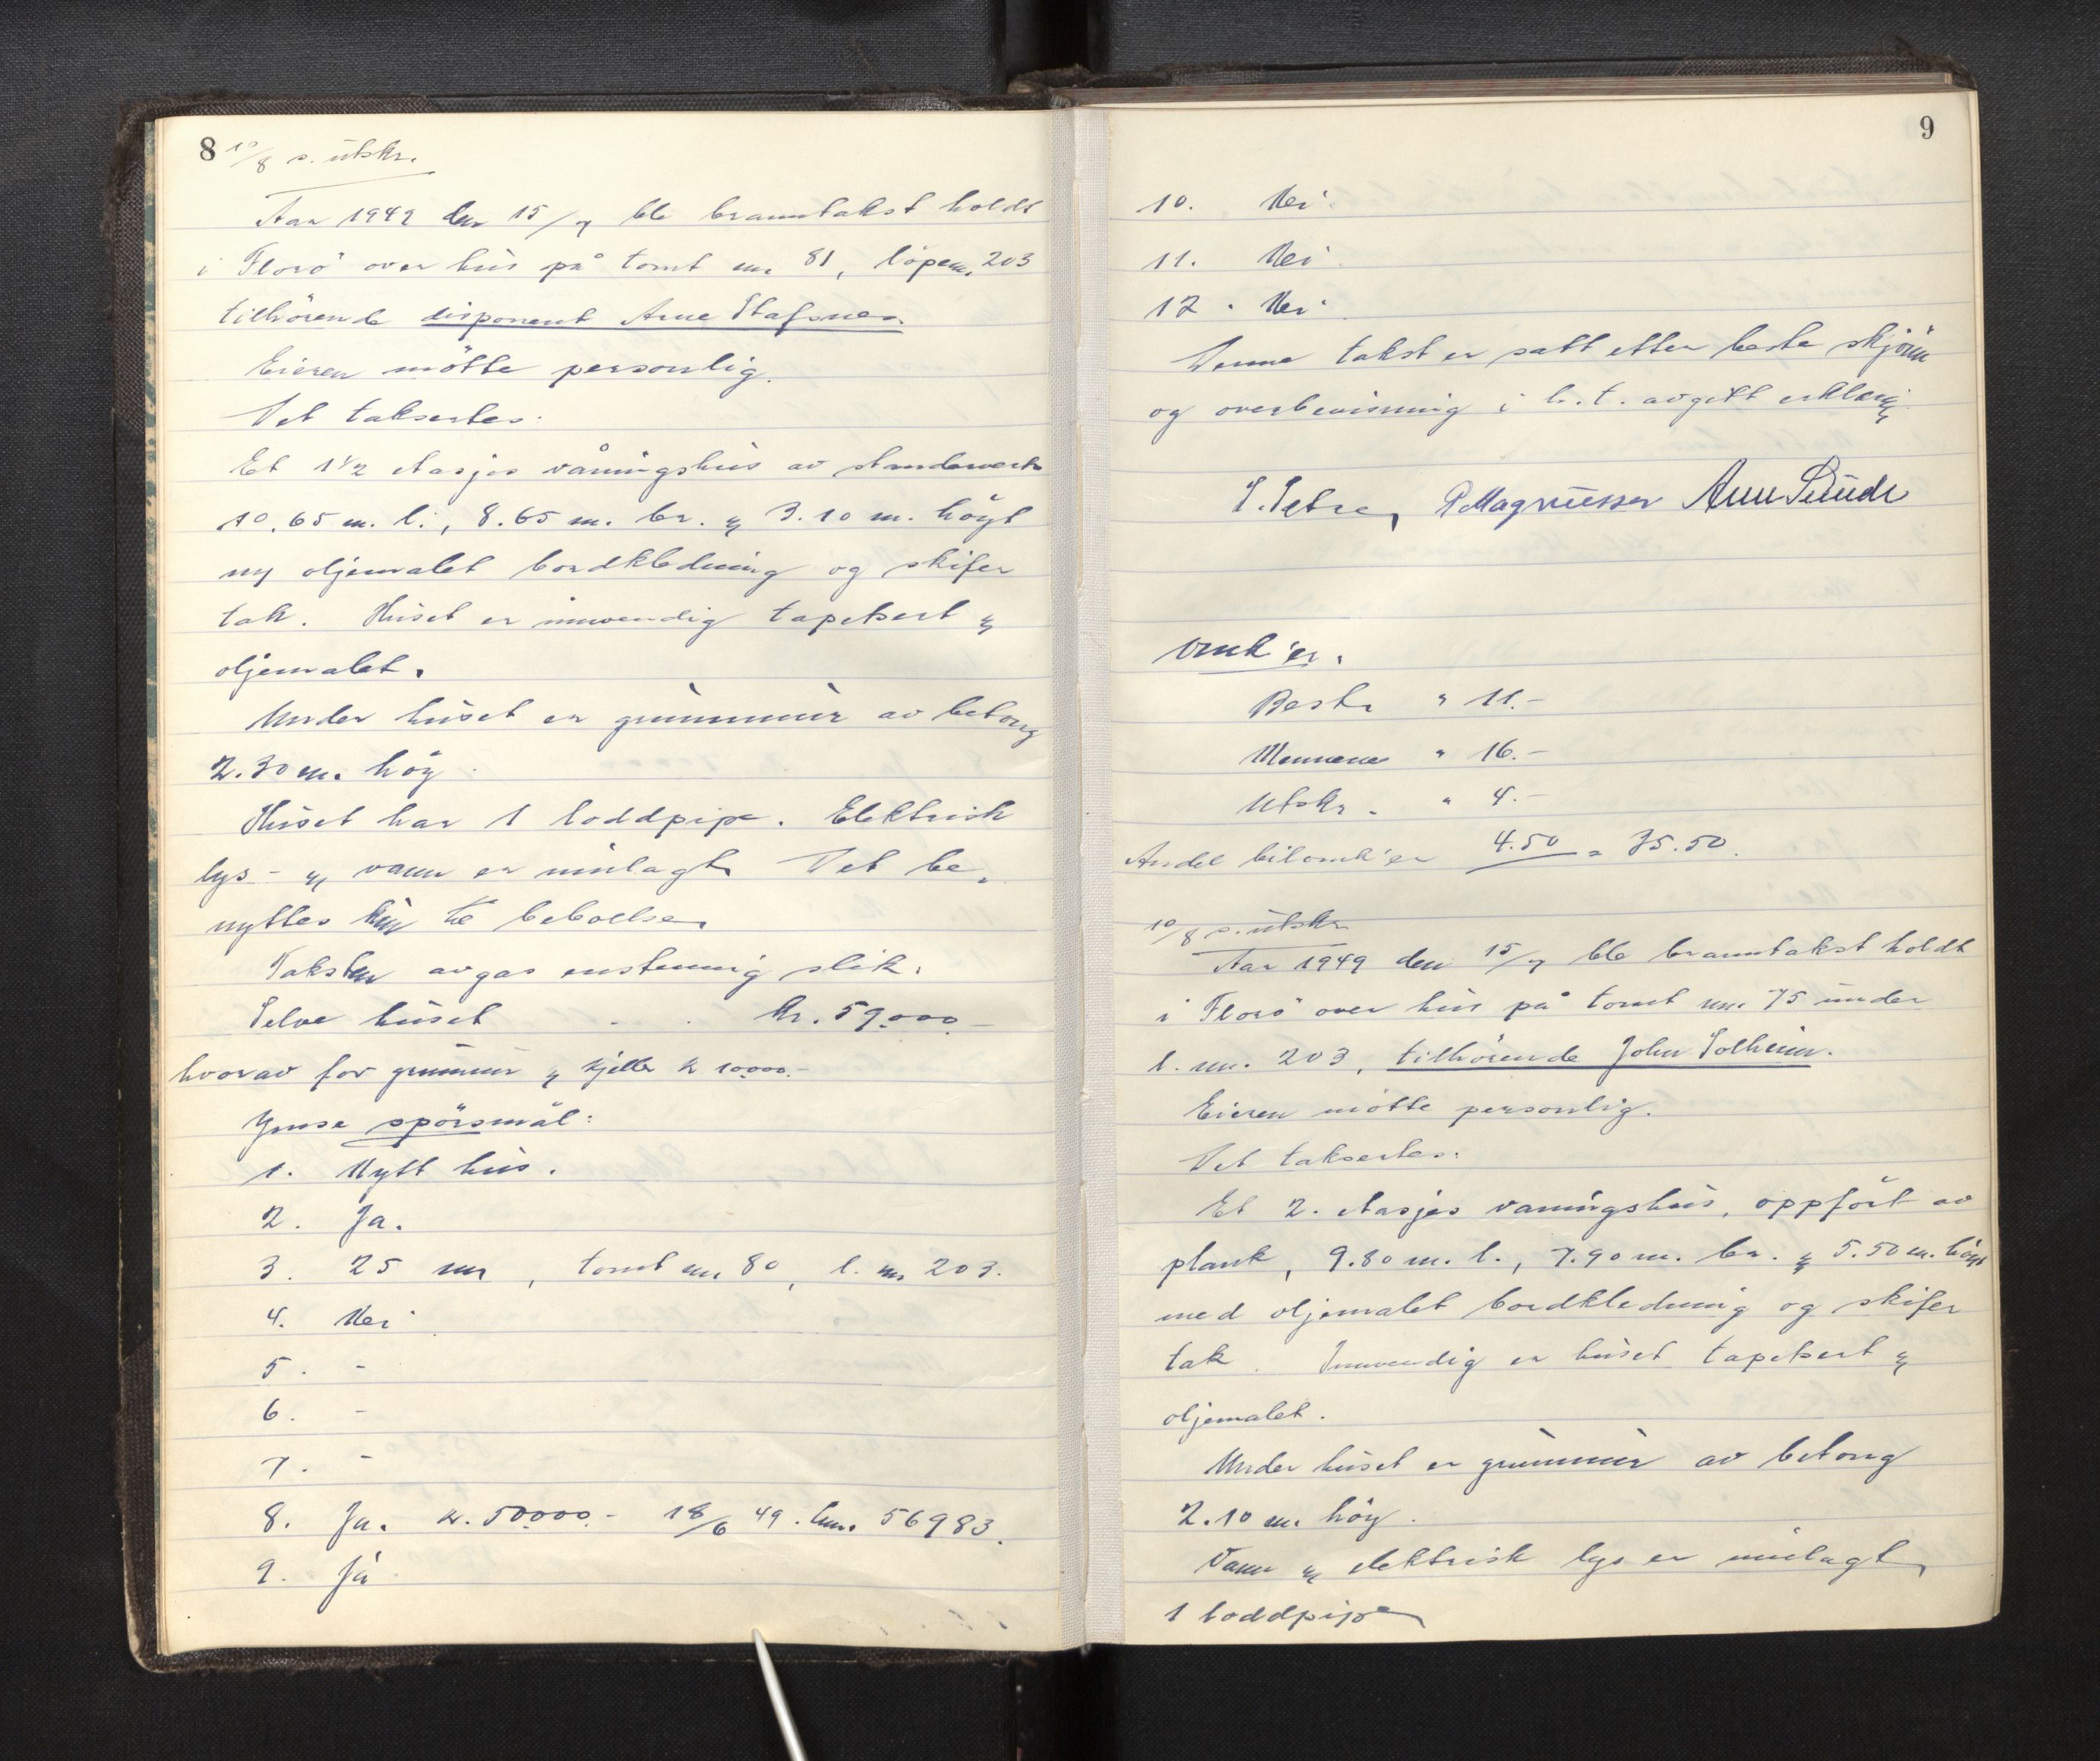 8 10/8 s. utskr.
Aar 1949 den 15/7 ble branntakst holdt
i Florö over hus på tomt nr. 81, löpenr. 203
tilhörende disponent Arne Stafsnes.
Eieren mötte personlig.
Det taksertes:
Et 1 1/2 etasjes våningshus av standerverk
10.65 m. l., 8.65 m. br. & 3.10 m. höyt
ny oljemalet bordkledning og skifer
tak. Huset er innvendig tapetsert &
oljemalet.
Under huset er grunnmur av betong
2.30 m. höy.
Huset har 1 loddpipe. Elektrisk
lys- & vann er innlagt. Det be-
nyttes kun til beboelse.
Taksten avgas enstemmig slik:
Selve huset . . kr. 59.000.-
hvorav for grunnmur & kjeller kr. 10000.-
Ymse spörsmål:
1. Nytt hus.
2. Ja.
3. 25 m, tomt nr. 80, l. nr. 203.
4. Nei
5. -
6. -
7. -
8. Ja. kr. 50000.- 18/6 49. lnr. 56983.
9. Ja
9
10. Nei.
11. Nei.
12. Nei.
Denne takst er satt etter beste skjönn
og overbevisning i h.t. avgitt erklæring
S. Setre, P Magnussen Arne Sunde
Omk'er.
Bestr " 11.-
Mennene " 16.-
Utskr. " 4.-
Andel bilomk'er 4.50 = 35.50.
10/8 s. utskr.
Aar 1949 den 15/7 ble branntakst holdt
i Florö over hus på tomt nr. 75 under
l. nr. 203, tilhörende John Solheim.
Eieren mötte personlig.
Det taksertes:
Et 2. etasjes vaningshus, oppfört av
plank, 9.80 m. l., 7.90 m. br. & 5.50 m. höyt
med oljemalet bordkledning og skifer
tak. Innvendig er huset tapetsert &
oljemalet.
Under huset er grunnmur av betong
2.10 m. höy.
Vann & elektrisk lys er innlagt,
1 loddpipe